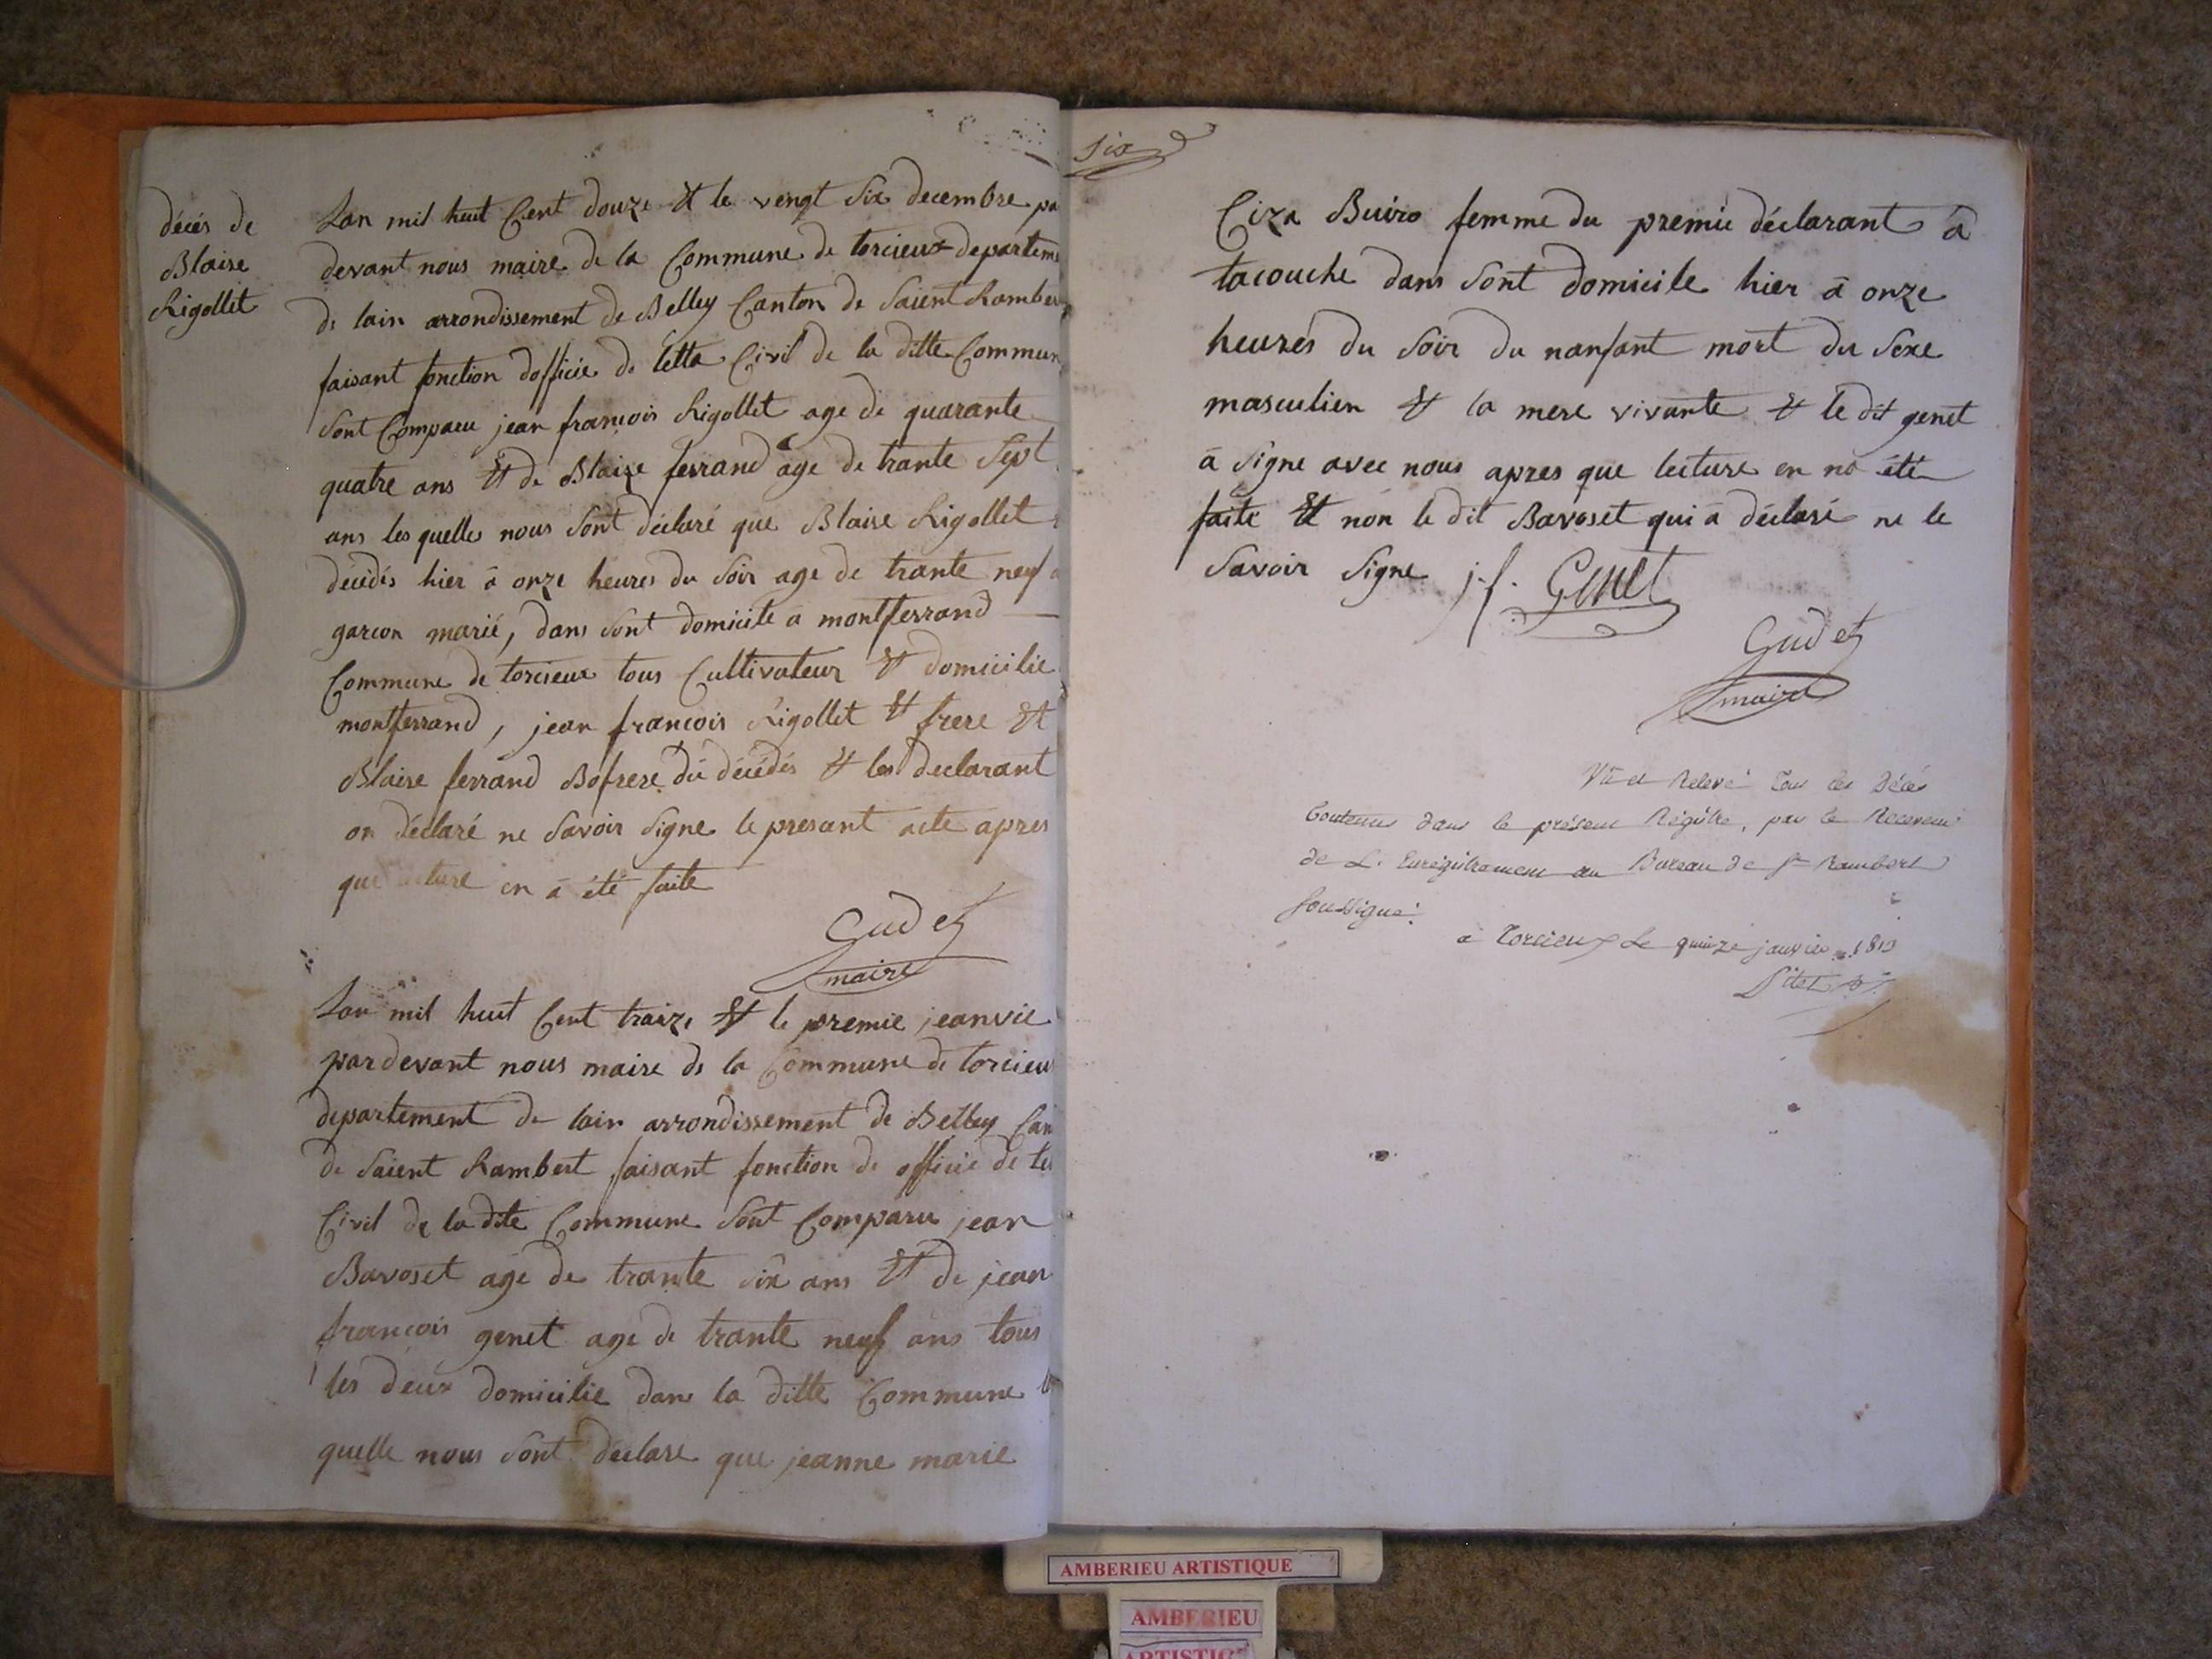 décés de
Blaise
Rigollet
Lan mil huit Cent douze Et le vengt Six decembre pa
devant nous maire de la Commune de torcieux departeme
de lain arrondissement de Belley Canton de Saient Ramber
faisant fonction dofficie de letta Civil de la ditte Commun
Sont Comparu jean francois Rigollet age de quarante
quatre ans Et de Blaise ferrand âge de trante Sept
ans les quelle nous Sont déclaré que Blaise Rigollet
décédés hier â onze heures du Soir age de trante neuf
garcon marié, dans Sont domicile a montferrand
Commune de torcieux tous Cultivateur Et domicilie
montferrand, jean francois Rigollet Et frere Et
Blaise ferrand Bofrere du décédés Et les declarant
on déclaré ne Savoir Signe le presant acte apres
que lecture en â été faite
Gudet
maire
Lan mil huit Cent traize Et le premie jeanvie
pardevant nous maire de la Commune de torcieu
departement de lain arrondissement de Belley Can
de Saient Rambert faisant fonction de officie de let
Civil de la dite Commune Sont Comparu jean
Bavoset age de trante six ans Et de jean
francois genet age de trante neuf ans tous
les deux domicilie dans la ditte Commune
quelle nous Sont déclare que jeanne marie
Six
Ciza Buiro femme du premie déclarant â
tacouche dans Sont domicile hier â onze
heures du Soir du nanfant mort du Sexe
masculien Et la mere vivante Et le dit genet
â Signe avec nous apres que lecture en nâ été
faite Et non le dit Bavoset qui â déclaré ne le
Savoir Signe j. f. Genet
Gudet
maire
Vu et Relevé Tous les Décès
Contenus dans le présent Régitre, par le Receveur
de L'Enregitrement au Bureau de St Rambert
Soussigné.
à Torcieux Le quinze janvier 1813
AMBERIEU ARTISTIQUE
AMBERIEU